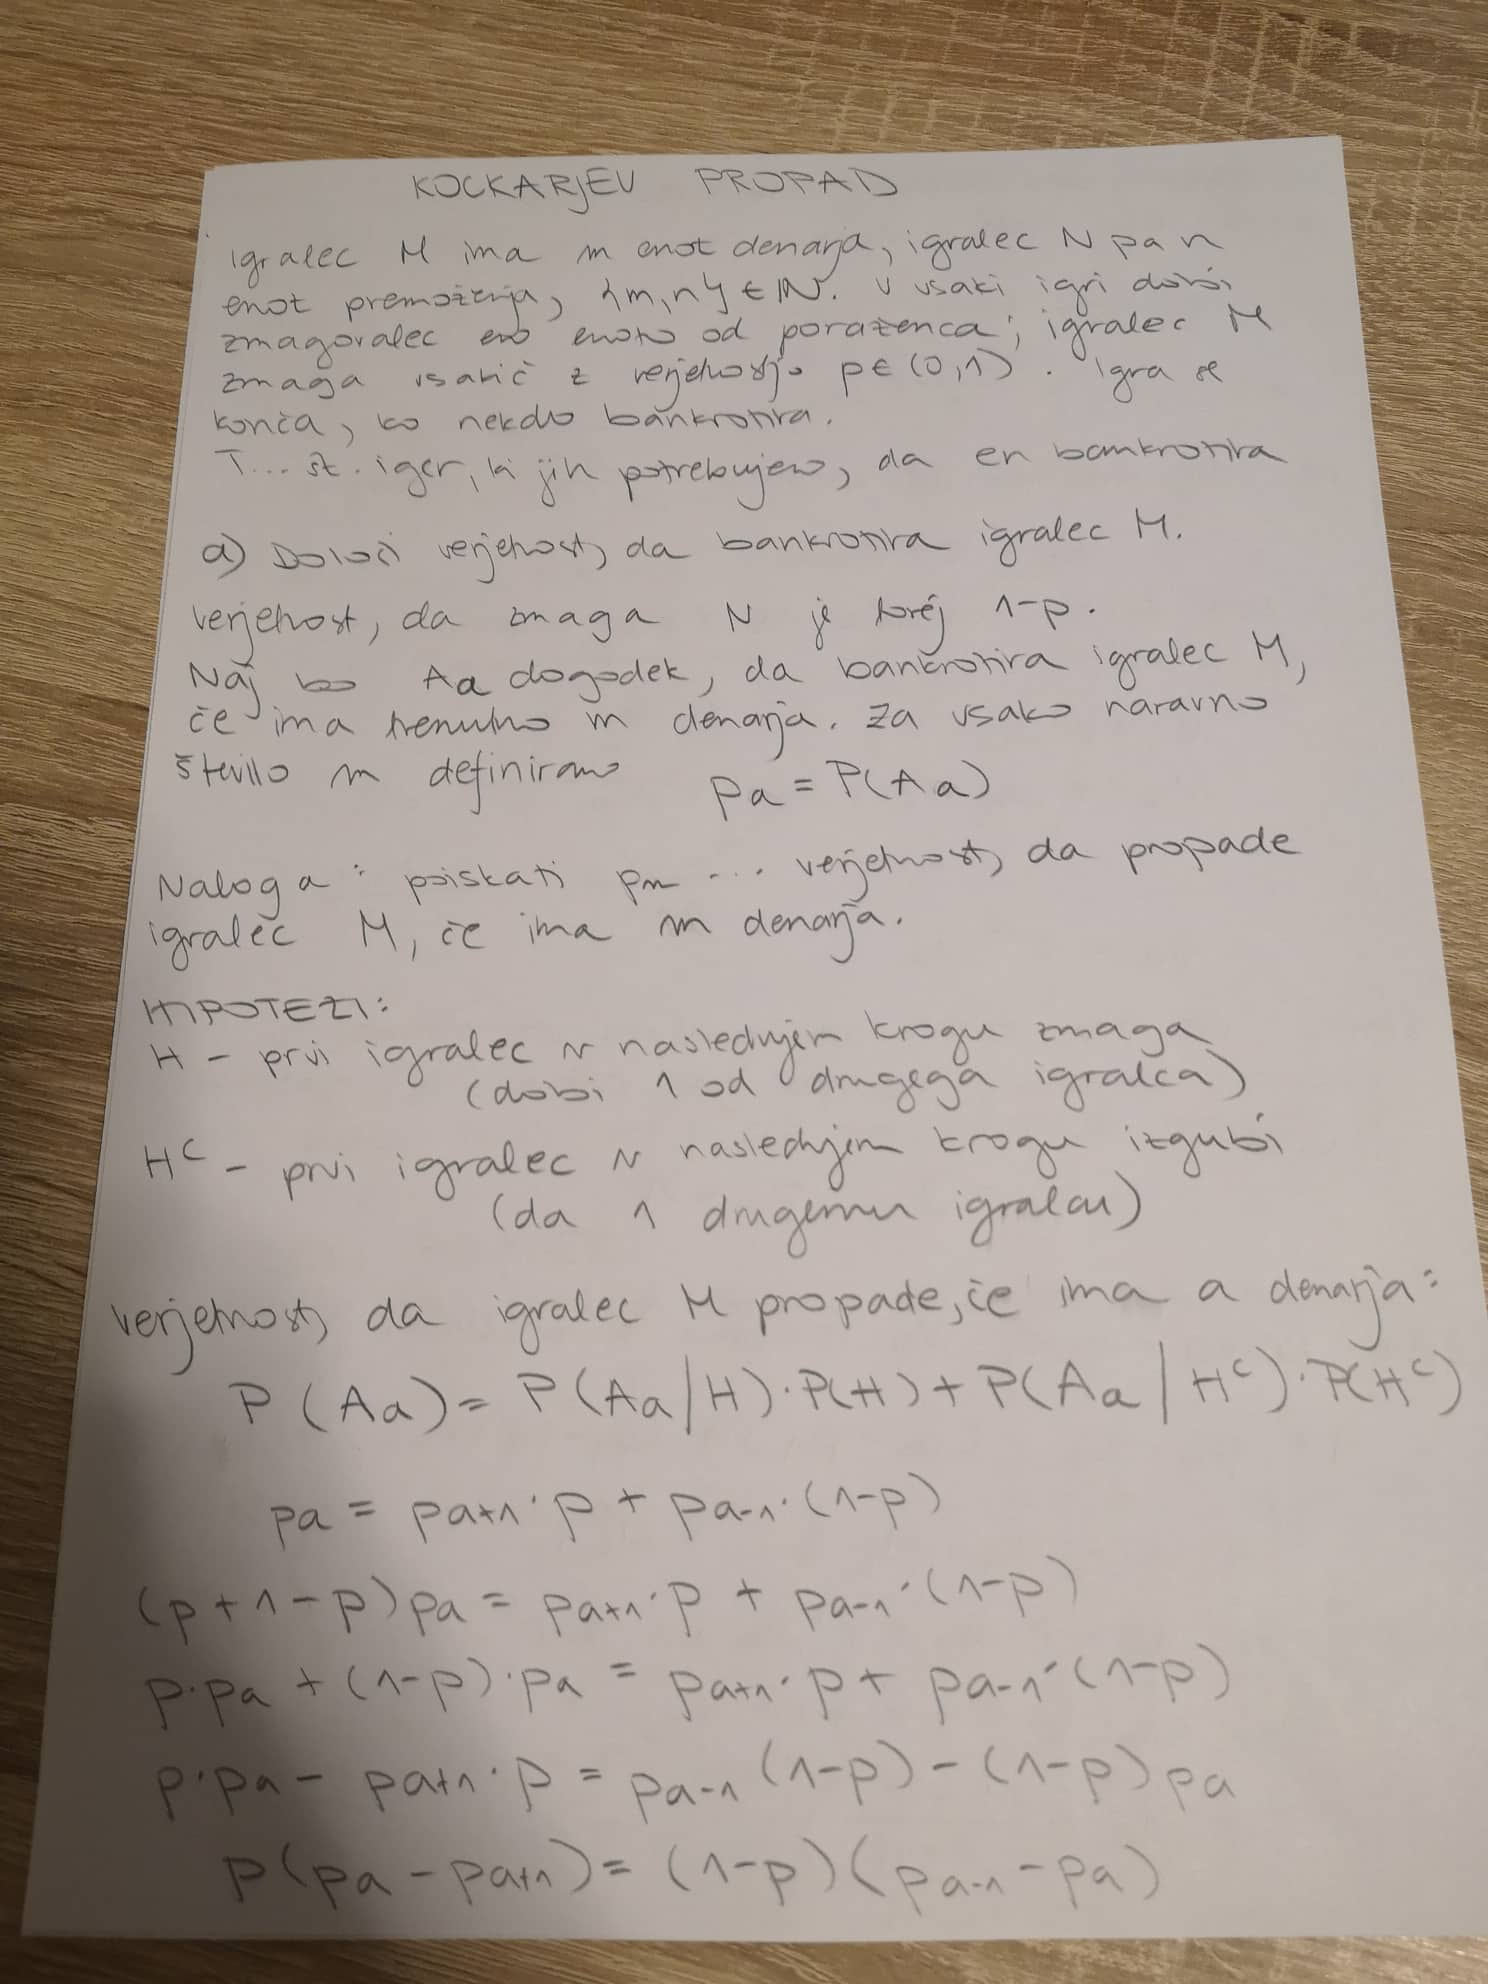 KOCKARJEV PROPAD
Igralec M ima m enot denarja, igralec N pa n
enot premoženja, {m,n} ∈ ℕ. V vsaki igri dobi
zmagovalec eno enoto od poraženca; igralec M
zmaga vsakič z verjetnostjo p∈(0,1). Igra se
konča, ko nekdo bankrotira.
T... št. iger, ki jih potrebujemo, da en bankrotira
a) Določi verjetnost, da bankrotira igralec M.
Verjetnost, da zmaga N je torej 1-p.
Naj bo Aa dogodek, da bankrotira igralec M,
če ima trenutno m denarja. Za vsako naravno
število m definiramo
pa = P(Aa)
Naloga: poiskati pm ... verjetnost, da propade
igralec M, če ima m denarja.
HIPOTEZI:
H - prvi igralec v naslednjem krogu zmaga
(dobi 1 od drugega igralca)
H^C - prvi igralec v naslednjem krogu izgubi
(da 1 drugemu igralcu)
Verjetnost, da igralec M propade, če ima a denarja:
P(Aa) = P(Aa/H)·P(H) + P(Aa/H^C)·P(H^C)
pa = pa+1·p + pa-1·(1-p)
(p+1-p)pa = pa+1·p + pa-1·(1-p)
p·pa + (1-p)·pa = pa+1·p + pa-1·(1-p)
p·pa - pa+1·p = pa-1(1-p) - (1-p)pa
p(pa - pa+1) = (1-p)(pa-1 - pa)